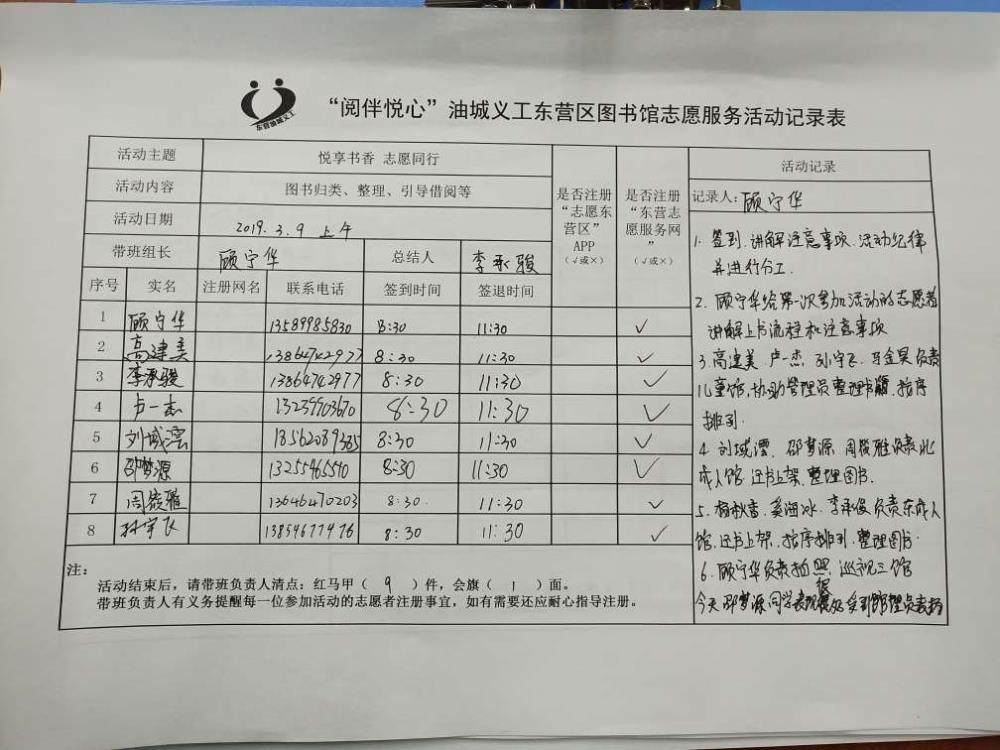 东营油城义工
“阅伴悦心”油城义工东营区图书馆志愿服务活动记录表
活动主题 悦享书香 志愿同行
活动内容 图书归类、整理、引导借阅等
活动日期 2019.3.9 上午
带班组长 顾宁华 总结人 李承骏
是否注册“志愿东营区”APP（√或×）
是否注册“东营志愿服务网”（√或×）
序号 实名 注册网名 联系电话 签到时间 签退时间
1 顾宁华 13589985830 8:30 11:30 √
2 高建美 13864742977 8:30 11:30 √
3 李承骏 13864742977 8:30 11:30 √
4 卢一杰 13239903670 8:30 11:30 √
5 刘域澐 13562039385 8:30 11:30 √
6 邵梦源 13255465540 8:30 11:30 √
7 周筱雅 13646470203 8:30 11:30 √
8 孙宇飞 13854677476 8:30 11:30 √
注：
活动结束后，请带班负责人清点：红马甲（ 9 ）件，会旗（ 1 ）面。
带班负责人有义务提醒每一位参加活动的志愿者注册事宜，如有需要还应耐心指导注册。
活动记录
记录人：顾宁华
1. 签到.讲解注意事项.活动纪律
并进行分工.
2. 顾宁华给第一次参加活动的志愿者
讲解上书流程和注意事项
3.高建美.卢一杰.孙宇飞.马金昊负责
儿童馆,协助管理员整理书籍.按序
排列.
4 刘域澐.邵梦源.周筱雅负责北
成人馆.还书上架.整理图书.
5. 杨秋香.奚海冰.李承俊负责东成人
馆.还书上架.按序排列.整理图书
6. 顾宁华负责拍照.巡视三馆
今天邵梦源同学表现很好受到管理员表扬